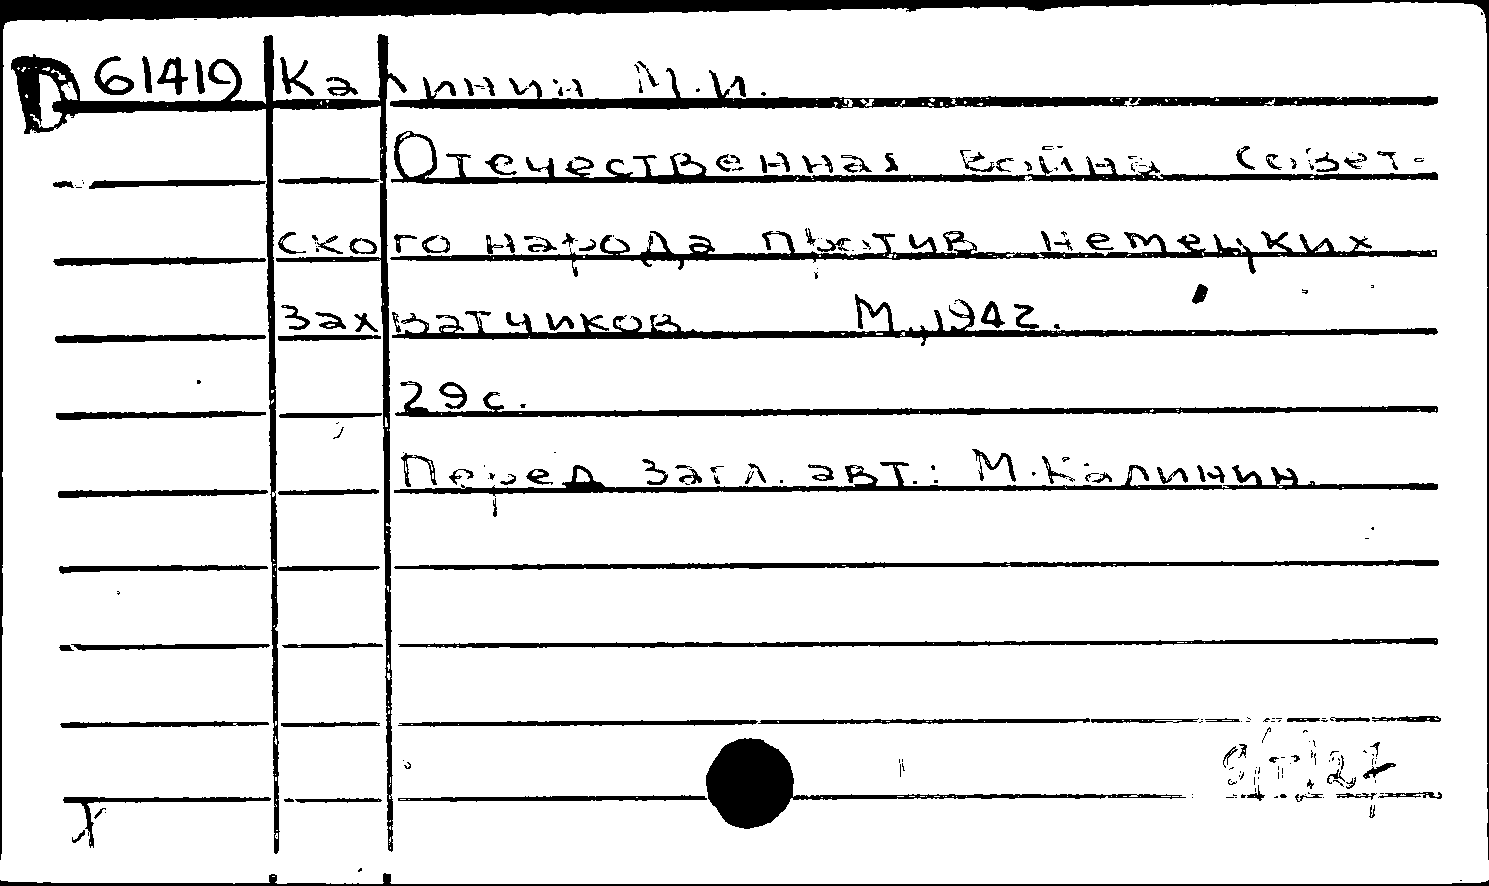 D 61419 Калинин М.И.
Отечественная война совет-
ского народа против немецких
захватчиков. М., 1942.
29 с.
Перед загл. авт.: М. Калинин.